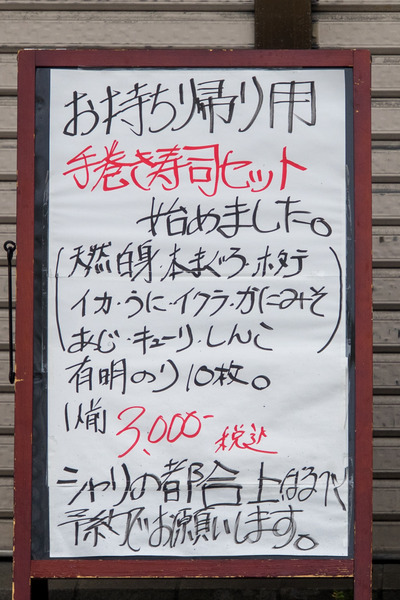 お持ち帰り用
手巻き寿司セット
始めました。
(天然白身・本まぐろ・ホタテ
イカ・うに・イクラ・かにみそ
あじ・キューリ・しんこ)
有明のり10枚。
1人前 3,000- 税込
シャリの都合上なるべく
予約でお願いします。